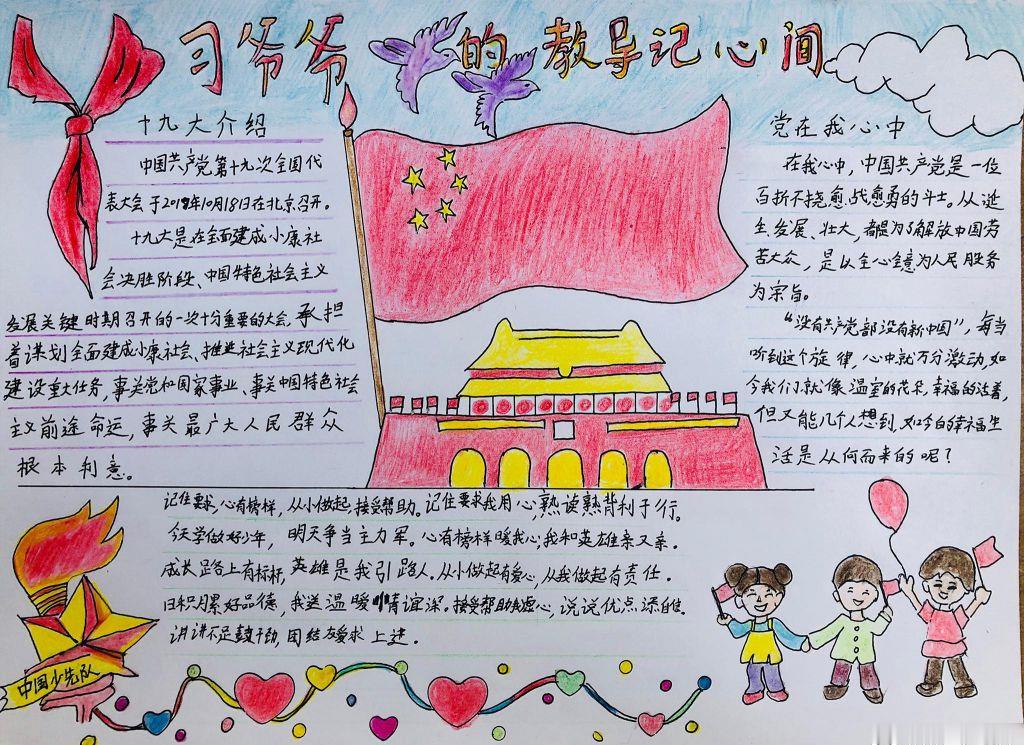 习爷爷的教导记心间
十九大介绍
中国共产党第十九次全国代
表大会于2018年10月18日在北京召开。
十九大是在全面建成小康社
会决胜阶段、中国特色社会主义
发展关键时期召开的一次十分重要的大会,承担
着谋划全面建成小康社会、推进社会主义现代化
建设重大任务,事关党和国家事业、事关中国特色社会
主义前途命运,事关最广大人民群众
根本利意。
党在我心中
在我心中,中国共产党是一位
百折不挠愈战愈勇的斗士。从诞
生、发展、壮大,都是为了解放中国劳
苦大众,是以全心全意为人民服务
为宗旨。
“没有共产党部没有新中国”,每当
听到这个旋律,心中就万分激动,如
今我们就像温室的花朵,幸福的活着,
但又能几个人想到,如今的幸福生
活是从何而来的呢?
记住要求,心有榜样,从小做起,接受帮助。记住要求我用心,熟读熟背利于行。
今天学做好少年,明天争当主力军。心有榜样暖我心;我和英雄亲又亲。
成长路上有标杆,英雄是我引路人。从小做起有爱心,从我做起有责任。
日积月累好品德,我送温暖情谊深。接受帮助我虚心,说说优点添自信。
讲讲不足鼓干劲,团结友爱求上进。
中国少先队